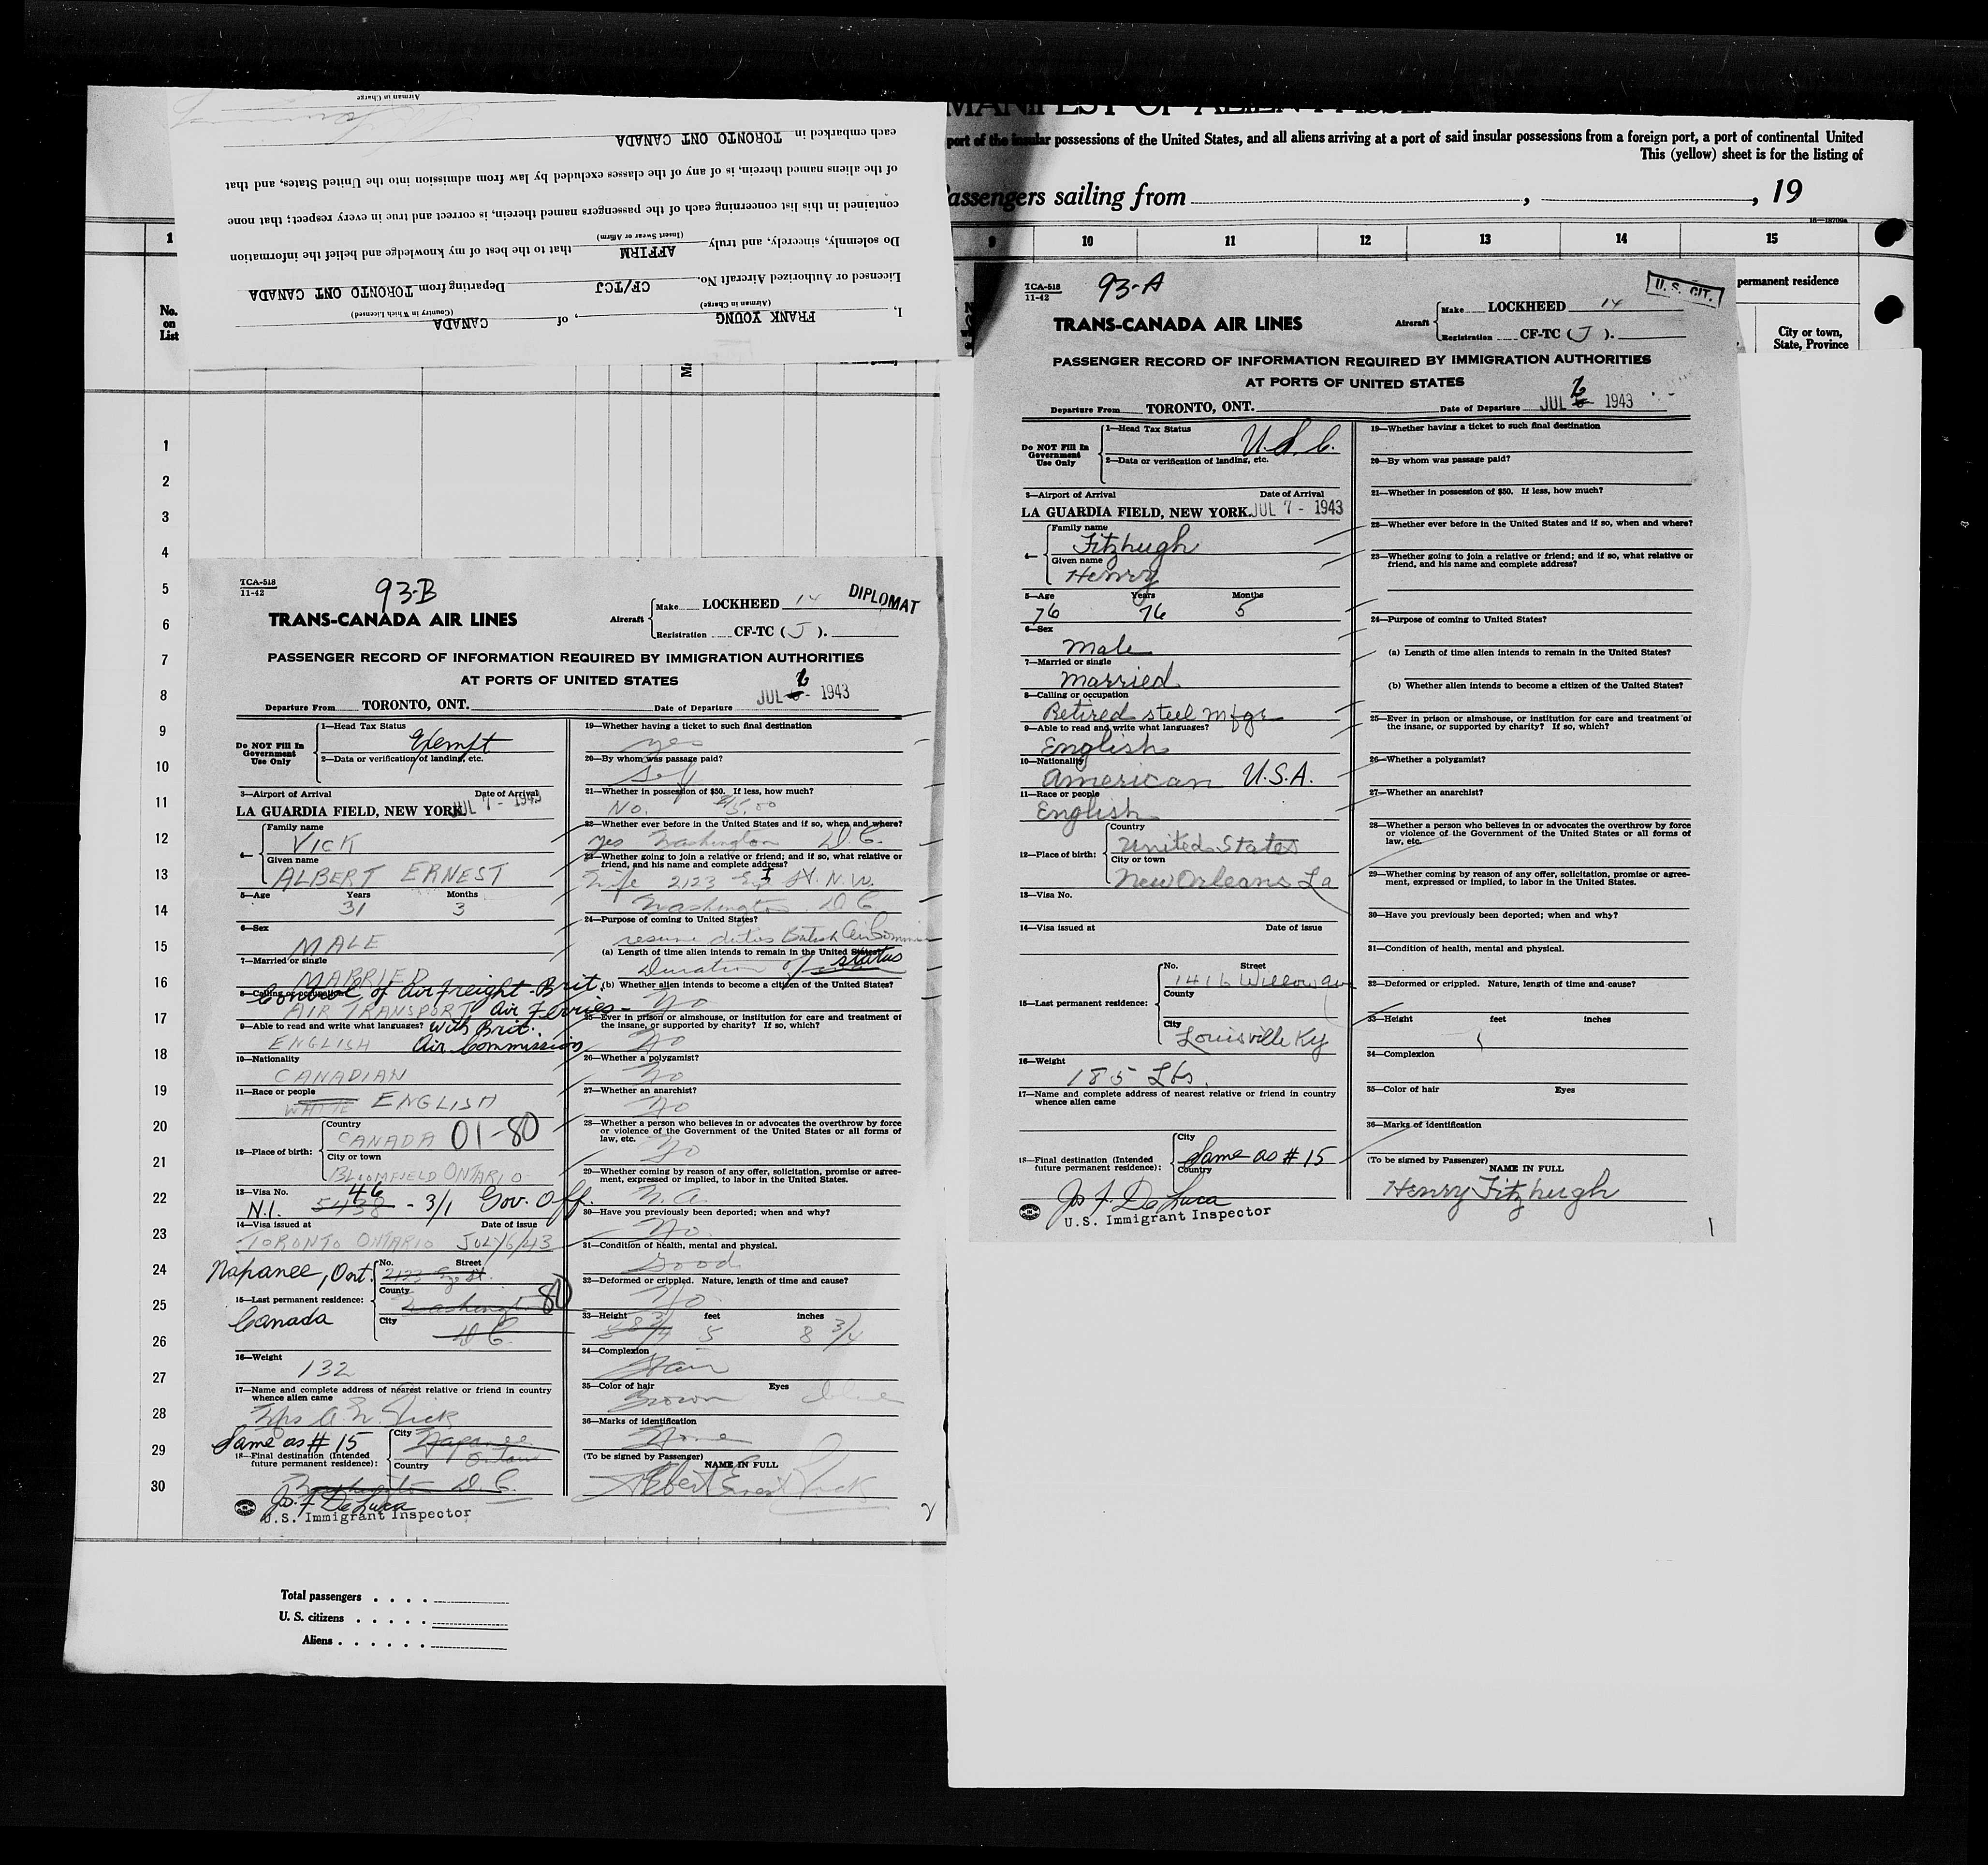 Airman in Charge
each embarked in TORONTO ONT CANADA
of the aliens named therein, is of any of the classes excluded by law from admission into the United States, and that
contained in this list concerning each of the passengers named therein, is correct and true in every respect; that none
(Insert Swear or Affirm)
Do solemnly, sincerely, and truly AFFIRM that to the best of my knowledge and belief the information
Licensed or Authorized Aircraft No. CF/TCJ Departing from TORONTO ONT CANADA
(Airman in Charge) (Country in Which Licensed)
I, FRANK YOUNG, of CANADA
1
No.
on
List
1
2
3
4
5
6
7
8
9
10
11
12
13
14
15
16
17
18
19
20
21
22
23
24
25
26
27
28
29
30
TCA-518
11-42
93-B
DIPLOMAT
TRANS-CANADA AIR LINES
Aircraft
Make LOCKHEED 14
Registration CF-TC (J).
PASSENGER RECORD OF INFORMATION REQUIRED BY IMMIGRATION AUTHORITIES
AT PORTS OF UNITED STATES
Departure From TORONTO, ONT. Date of Departure JUL 6 - 1943
Do NOT Fill In
Government
Use Only
1—Head Tax Status
Exempt
2—Data or verification of landing, etc.
3—Airport of Arrival Date of Arrival
LA GUARDIA FIELD, NEW YORK. JUL 7 - 1943
4—
Family name
VICK
Given name
ALBERT ERNEST
5—Age Years Months
31 3
6—Sex
MALE
7—Married or single
MARRIED
8—Calling or occupation
Control of air freight-Brit.
AIR TRANSPORT Air Ferries-
9—Able to read and write what languages? with Brit.
ENGLISH Air Commission
10—Nationality
CANADIAN
11—Race or people
WHITE ENGLISH
12—Place of birth:
Country
CANADA 01-80
City or town
BLOOMFIELD ONTARIO
13—Visa No. 46
N.I. 5438 - 3/1 Gov. Off.
14—Visa issued at Date of issue
TORONTO ONTARIO JULY 6/43
Napanee, Ont.
No. Street
2123 Eye St.
15—Last permanent residence:
County
Washington 80
Canada
City
D C
16—Weight
132
17—Name and complete address of nearest relative or friend in country
whence alien came
Mrs A. E. Vick
Same as # 15
City
Napanee
Ontario
18—Final destination (Intended
future permanent residence):
Country
Washington D.C.
Jos. F. De Luca
U.S. Immigrant Inspector
19—Whether having a ticket to such final destination
yes
20—By whom was passage paid?
self
21—Whether in possession of $50. If less, how much?
No. $15.00
22—Whether ever before in the United States and if so, when and where?
yes Washington D.C.
23—Whether going to join a relative or friend; and if so, what relative or
friend, and his name and complete address?
Wife 2123 I St. N.W.
Washington. D.C.
24—Purpose of coming to United States?
resume duties British Air Commis
(a) Length of time alien intends to remain in the United States?
Duration of status
(b) Whether alien intends to become a citizen of the United States?
No
25—Ever in prison or almshouse, or institution for care and treatment of
the insane, or supported by charity? If so, which?
No
26—Whether a polygamist?
No
27—Whether an anarchist?
No
28—Whether a person who believes in or advocates the overthrow by force
or violence of the Government of the United States or all forms of
law, etc.
No
29—Whether coming by reason of any offer, solicitation, promise or agree-
ment, expressed or implied, to labor in the United States.
N.A.
30—Have you previously been deported; when and why?
No
31—Condition of health, mental and physical.
Good
32—Deformed or crippled. Nature, length of time and cause?
No
33—Height feet inches
5 8 3/4
34—Complexion
35—Color of hair Eyes
Brown blue
36—Marks of identification
None
(To be signed by Passenger)
NAME IN FULL
Albert Ernest Vick
2
Total passengers
U. S. citizens
Aliens
MANIFEST OF ALIEN PASSE
port of the insular possessions of the United States, and all aliens arriving at a port of said insular possessions from a foreign port, a port of continental United
This (yellow) sheet is for the listing of
assengers sailing from , , 19
9 10 11 12 13 14 15
permanent residence
City or town,
State, Province
TCA-518
11-42
93-A
U. S. CIT.
TRANS-CANADA AIR LINES
Aircraft
Make LOCKHEED 14
Registration CF-TC (J).
PASSENGER RECORD OF INFORMATION REQUIRED BY IMMIGRATION AUTHORITIES
AT PORTS OF UNITED STATES
Departure From TORONTO, ONT. Date of Departure JUL 6 1943
Do NOT Fill In
Government
Use Only
1—Head Tax Status
U.S.C.
2—Data or verification of landing, etc.
3—Airport of Arrival Date of Arrival
LA GUARDIA FIELD, NEW YORK. JUL 7 - 1943
4—
Family name
Fitzhugh
Given name
Henry
5—Age Years Months
76 76 5
6—Sex
Male
7—Married or single
Married
8—Calling or occupation
Retired steel Mfgr
9—Able to read and write what languages?
English
10—Nationality
American U.S.A.
11—Race or people
English
12—Place of birth:
Country
United States
City or town
New Orleans La
13—Visa No.
14—Visa issued at Date of issue
15—Last permanent residence:
No. Street
1416 Willow ave
County
City
Louisville Ky
16—Weight
185 Lbs.
17—Name and complete address of nearest relative or friend in country
whence alien came
18—Final destination (Intended
future permanent residence):
City
Same as # 15
Country
Jos. F. De Luca
U.S. Immigrant Inspector
19—Whether having a ticket to such final destination
20—By whom was passage paid?
21—Whether in possession of $50. If less, how much?
22—Whether ever before in the United States and if so, when and where?
23—Whether going to join a relative or friend; and if so, what relative or
friend, and his name and complete address?
24—Purpose of coming to United States?
(a) Length of time alien intends to remain in the United States?
(b) Whether alien intends to become a citizen of the United States?
25—Ever in prison or almshouse, or institution for care and treatment of
the insane, or supported by charity? If so, which?
26—Whether a polygamist?
27—Whether an anarchist?
28—Whether a person who believes in or advocates the overthrow by force
or violence of the Government of the United States or all forms of
law, etc.
29—Whether coming by reason of any offer, solicitation, promise or agree-
ment, expressed or implied, to labor in the United States.
30—Have you previously been deported; when and why?
31—Condition of health, mental and physical.
32—Deformed or crippled. Nature, length of time and cause?
33—Height feet inches
34—Complexion
35—Color of hair Eyes
36—Marks of identification
(To be signed by Passenger)
NAME IN FULL
Henry Fitzhugh
1